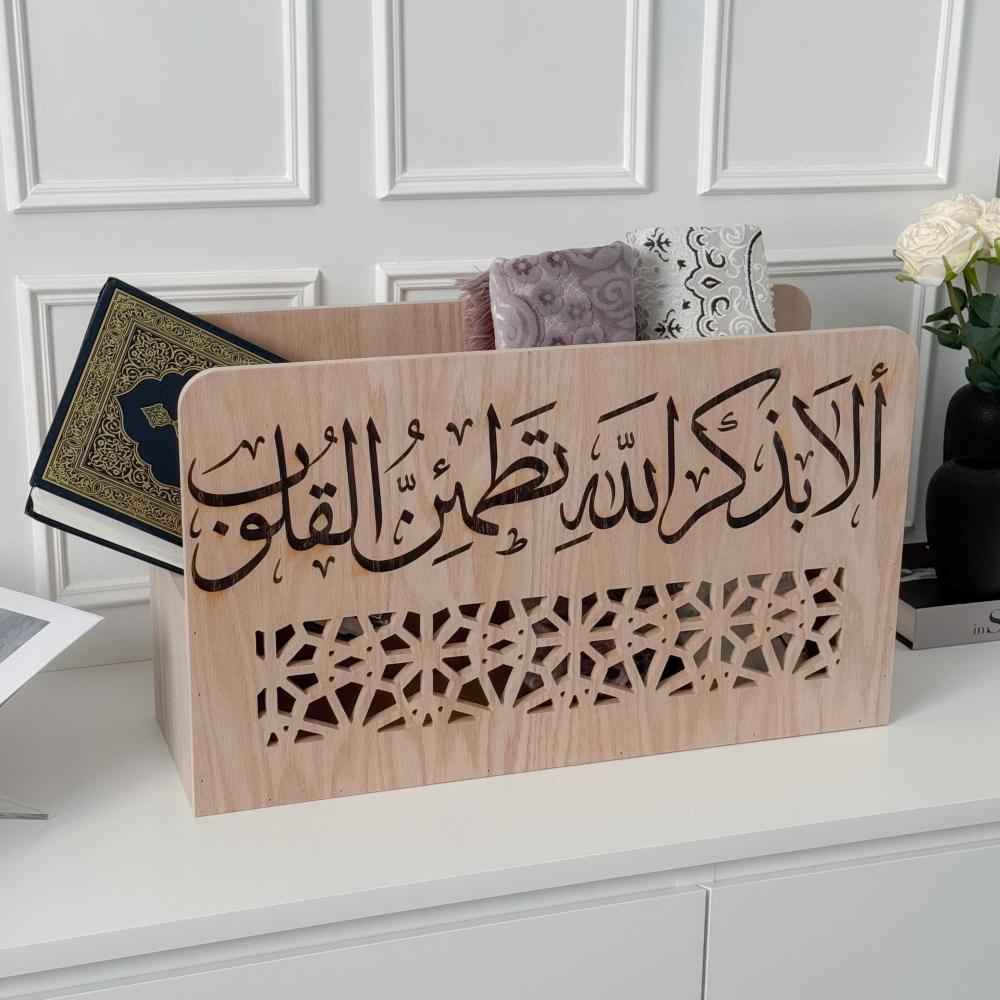 ألا بذكر الله تطمئن القلوب
in S